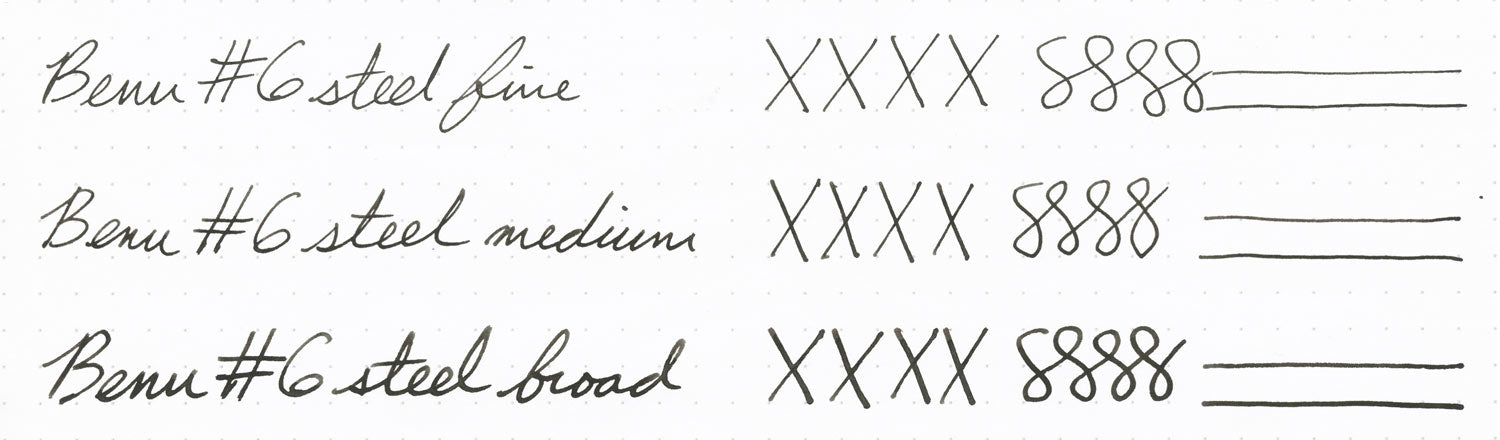 Benu #6 steel fine XXXX 8888
Benu #6 steel medium XXXX 8888
Benu #6 steel broad XXXX 8888